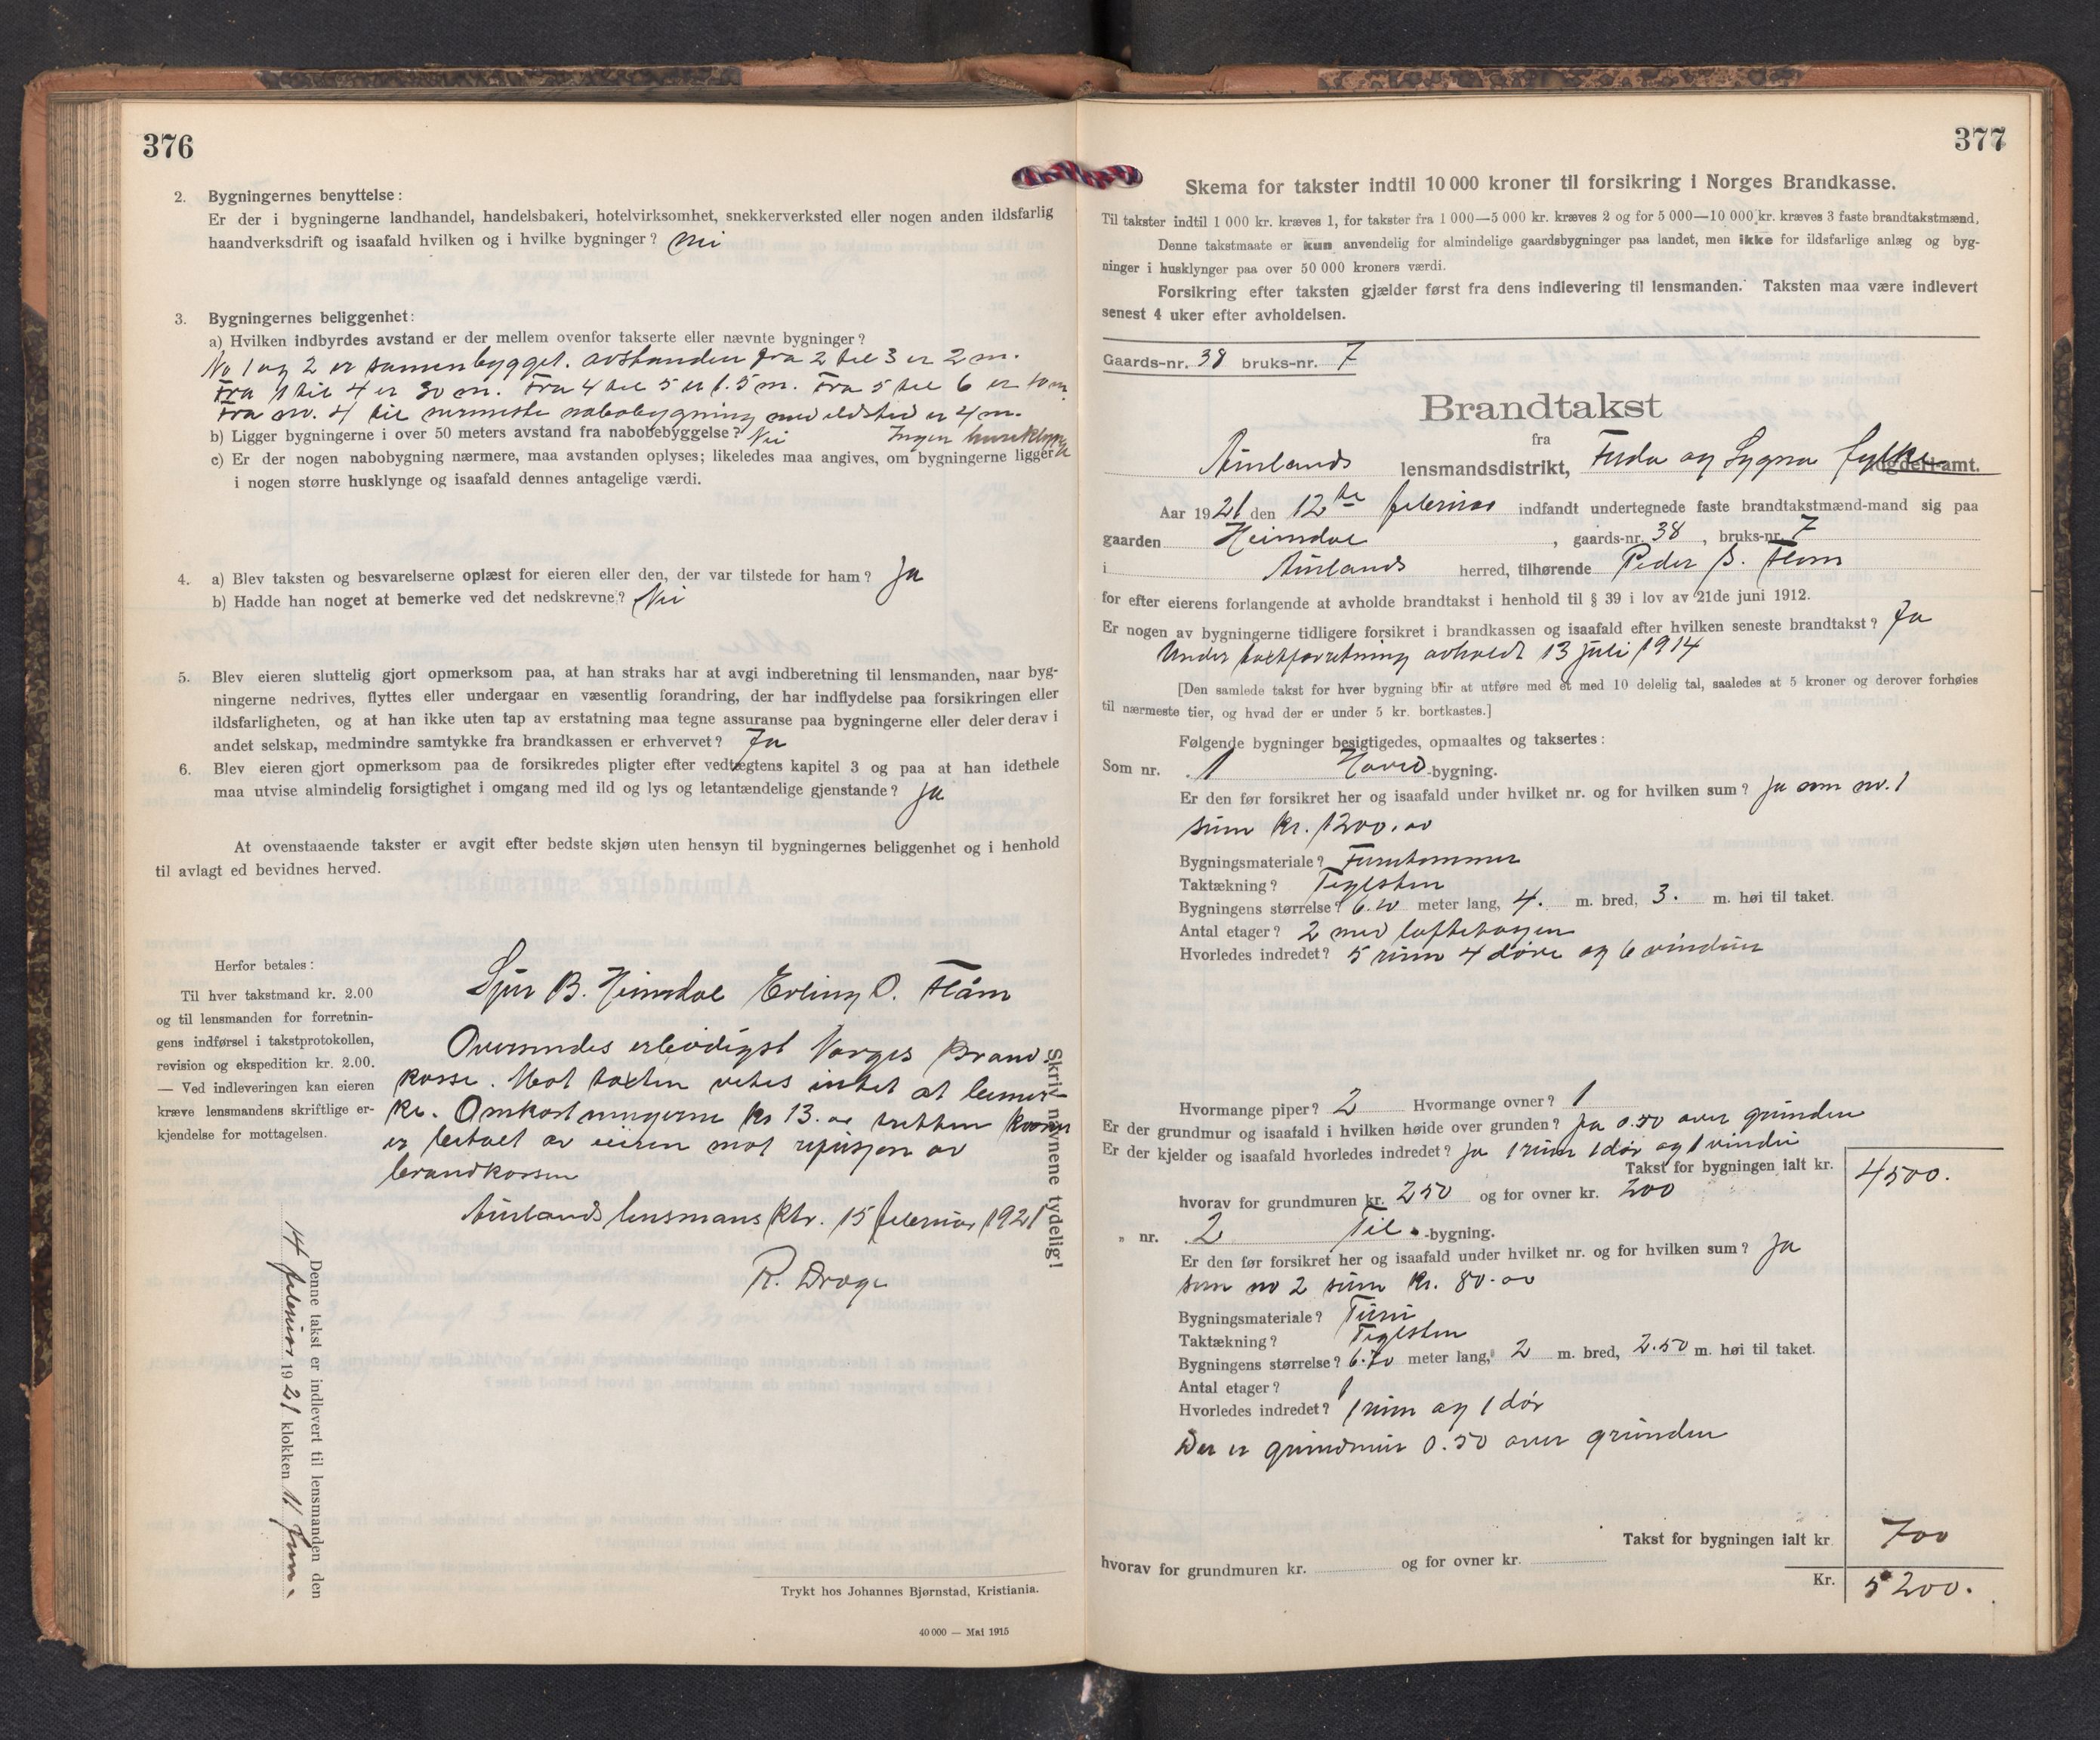 376
2. Bygningernes benyttelse:
Er der i bygningerne landhandel, handelsbakeri, hotelvirksomhet, snekkerverksted eller nogen anden ildsfarlig
haandverksdrift og isaafald hvilken og i hvilke bygninger? Nei
3. Bygningernes beliggenhet:
a) Hvilken indbyrdes avstand er der mellem ovenfor takserte eller nævnte bygninger?
No 1 og 2 er samenbygget. avstanden fra 2 til 3 er 2 m.
Fra 1 til 4 er 30 m. Fra 4 til 5 er 1.5 m. Fra 5 til 6 er 10 m.
Fra nr. 4 til nærmeste nabobygning med ildsted er 4 m.
b) Ligger bygningerne i over 50 meters avstand fra nabobebyggelse? Nei Ingen husklynge
c) Er der nogen nabobygning nærmere, maa avstanden oplyses; likeledes maa angives, om bygningerne ligger
i nogen større husklynge og isaafald dennes antagelige værdi.
4. a) Blev taksten og besvarelserne oplæst for eieren eller den, der var tilstede for ham? Ja
b) Hadde han noget at bemerke ved det nedskrevne? Nei
5. Blev eieren sluttelig gjort opmerksom paa, at han straks har at avgi indberetning til lensmanden, naar byg-
ningerne nedrives, flyttes eller undergaar en væsentlig forandring, der har indflydelse paa forsikringen eller
ildsfarligheten, og at han ikke uten tap av erstatning maa tegne assuranse paa bygningerne eller deler derav i
andet selskap, medmindre samtykke fra brandkassen er erhvervet? Ja
6. Blev eieren gjort opmerksom paa de forsikredes pligter efter vedtægtens kapitel 3 og paa at han idethele
maa utvise almindelig forsigtighet i omgang med ild og lys og letantændelige gjenstande? Ja
At ovenstaaende takster er avgit efter bedste skjøn uten hensyn til bygningernes beliggenhet og i henhold
til avlagt ed bevidnes herved.
Herfor betales:
Til hver takstmand kr. 2.00
og til lensmanden for forretnin-
gens indførsel i takstprotokollen,
revision og ekspedition kr. 2.00.
— Ved indleveringen kan eieren
kræve lensmandens skriftlige er-
kjendelse for mottagelsen.
Sjur B. Heimdal Erling O. Flåm
Oversendes erbødigst Norges Brand-
kasse. Mot taxten vites intet at bemer-
ke. Omkostningerne kr 13.00 tretten kroner
er betalt av eieren mot refusjon av
brandkassen
Aurlands lensmans ktr. 15 februar 1921
R. Drage
Skriv navnene tydelig!
Denne takst er indlevert til lensmanden den
14 februar 1921 klokken 11 fm.
Trykt hos Johannes Bjørnstad, Kristiania.
40 000 — Mai 1915
377
Skema for takster indtil 10 000 kroner til forsikring i Norges Brandkasse.
Til takster indtil 1 000 kr. kræves 1, for takster fra 1 000—5 000 kr. kræves 2 og for 5 000—10 000 kr. kræves 3 faste brandtakstmænd.
Denne takstmaate er kun anvendelig for almindelige gaardsbygninger paa landet, men ikke for ildsfarlige anlæg og byg-
ninger i husklynger paa over 50 000 kroners værdi.
Forsikring efter taksten gjælder først fra dens indlevering til lensmanden. Taksten maa være indlevert
senest 4 uker efter avholdelsen.
Gaards-nr. 38 bruks-nr. 7
Brandtakst
fra
Aurlands lensmandsdistrikt, Firda og Sygna fylke amt.
Aar 1921 den 12te februar indfandt undertegnede faste brandtakstmænd-mand sig paa
gaarden Heimdal, gaards-nr. 38, bruks-nr. 7
i Aurlands herred, tilhørende Peder B. Flom
for efter eierens forlangende at avholde brandtakst i henhold til § 39 i lov av 21de juni 1912.
Er nogen av bygningerne tidligere forsikret i brandkassen og isaafald efter hvilken seneste brandtakst? Ja
Under taxtforretning avholdt 13 juli 1914
[Den samlede takst for hver bygning blir at utføre med et med 10 delelig tal, saaledes at 5 kroner og derover forhøies
til nærmeste tier, og hvad der er under 5 kr. bortkastes.]
Følgende bygninger besigtigedes, opmaaltes og taksertes:
Som nr. 1 Hoved-bygning.
Er den før forsikret her og isaafald under hvilket nr. og for hvilken sum? Ja som nr. 1
sum kr. 1200.00
Bygningsmateriale? Furutømmer
Taktækning? Teglsten
Bygningens størrelse? 6.20 meter lang, 4. m. bred, 3. m. høi til taket.
Antal etager? 2 med loftetagen
Hvorledes indredet? 5 rum 4 døre og 6 vinduer
Hvormange piper? 2 Hvormange ovner? 1
Er der grundmur og isaafald i hvilken høide over grunden? Ja 0.50 over grunden
Er der kjelder og isaafald hvorledes indredet? Ja 1 rum 1 dør og 1 vindu
Takst for bygningen ialt kr. 4500.
hvorav for grundmuren kr. 250 og for ovner kr. 200
„ nr. 2 Til-bygning.
Er den før forsikret her og isaafald under hvilket nr. og for hvilken sum? Ja
som no 2 sum kr. 80.00
Bygningsmateriale? Furu
Taktækning? Teglsten
Bygningens størrelse? 6.70 meter lang, 2 m. bred, 2.50 m. høi til taket.
Antal etager? 1
Hvorledes indredet? 1 rum og 1 dør
Der er grundmur 0.50 over grunden
Takst for bygningen ialt kr. 700
hvorav for grundmuren kr. og for ovner kr.
Kr. 5200.